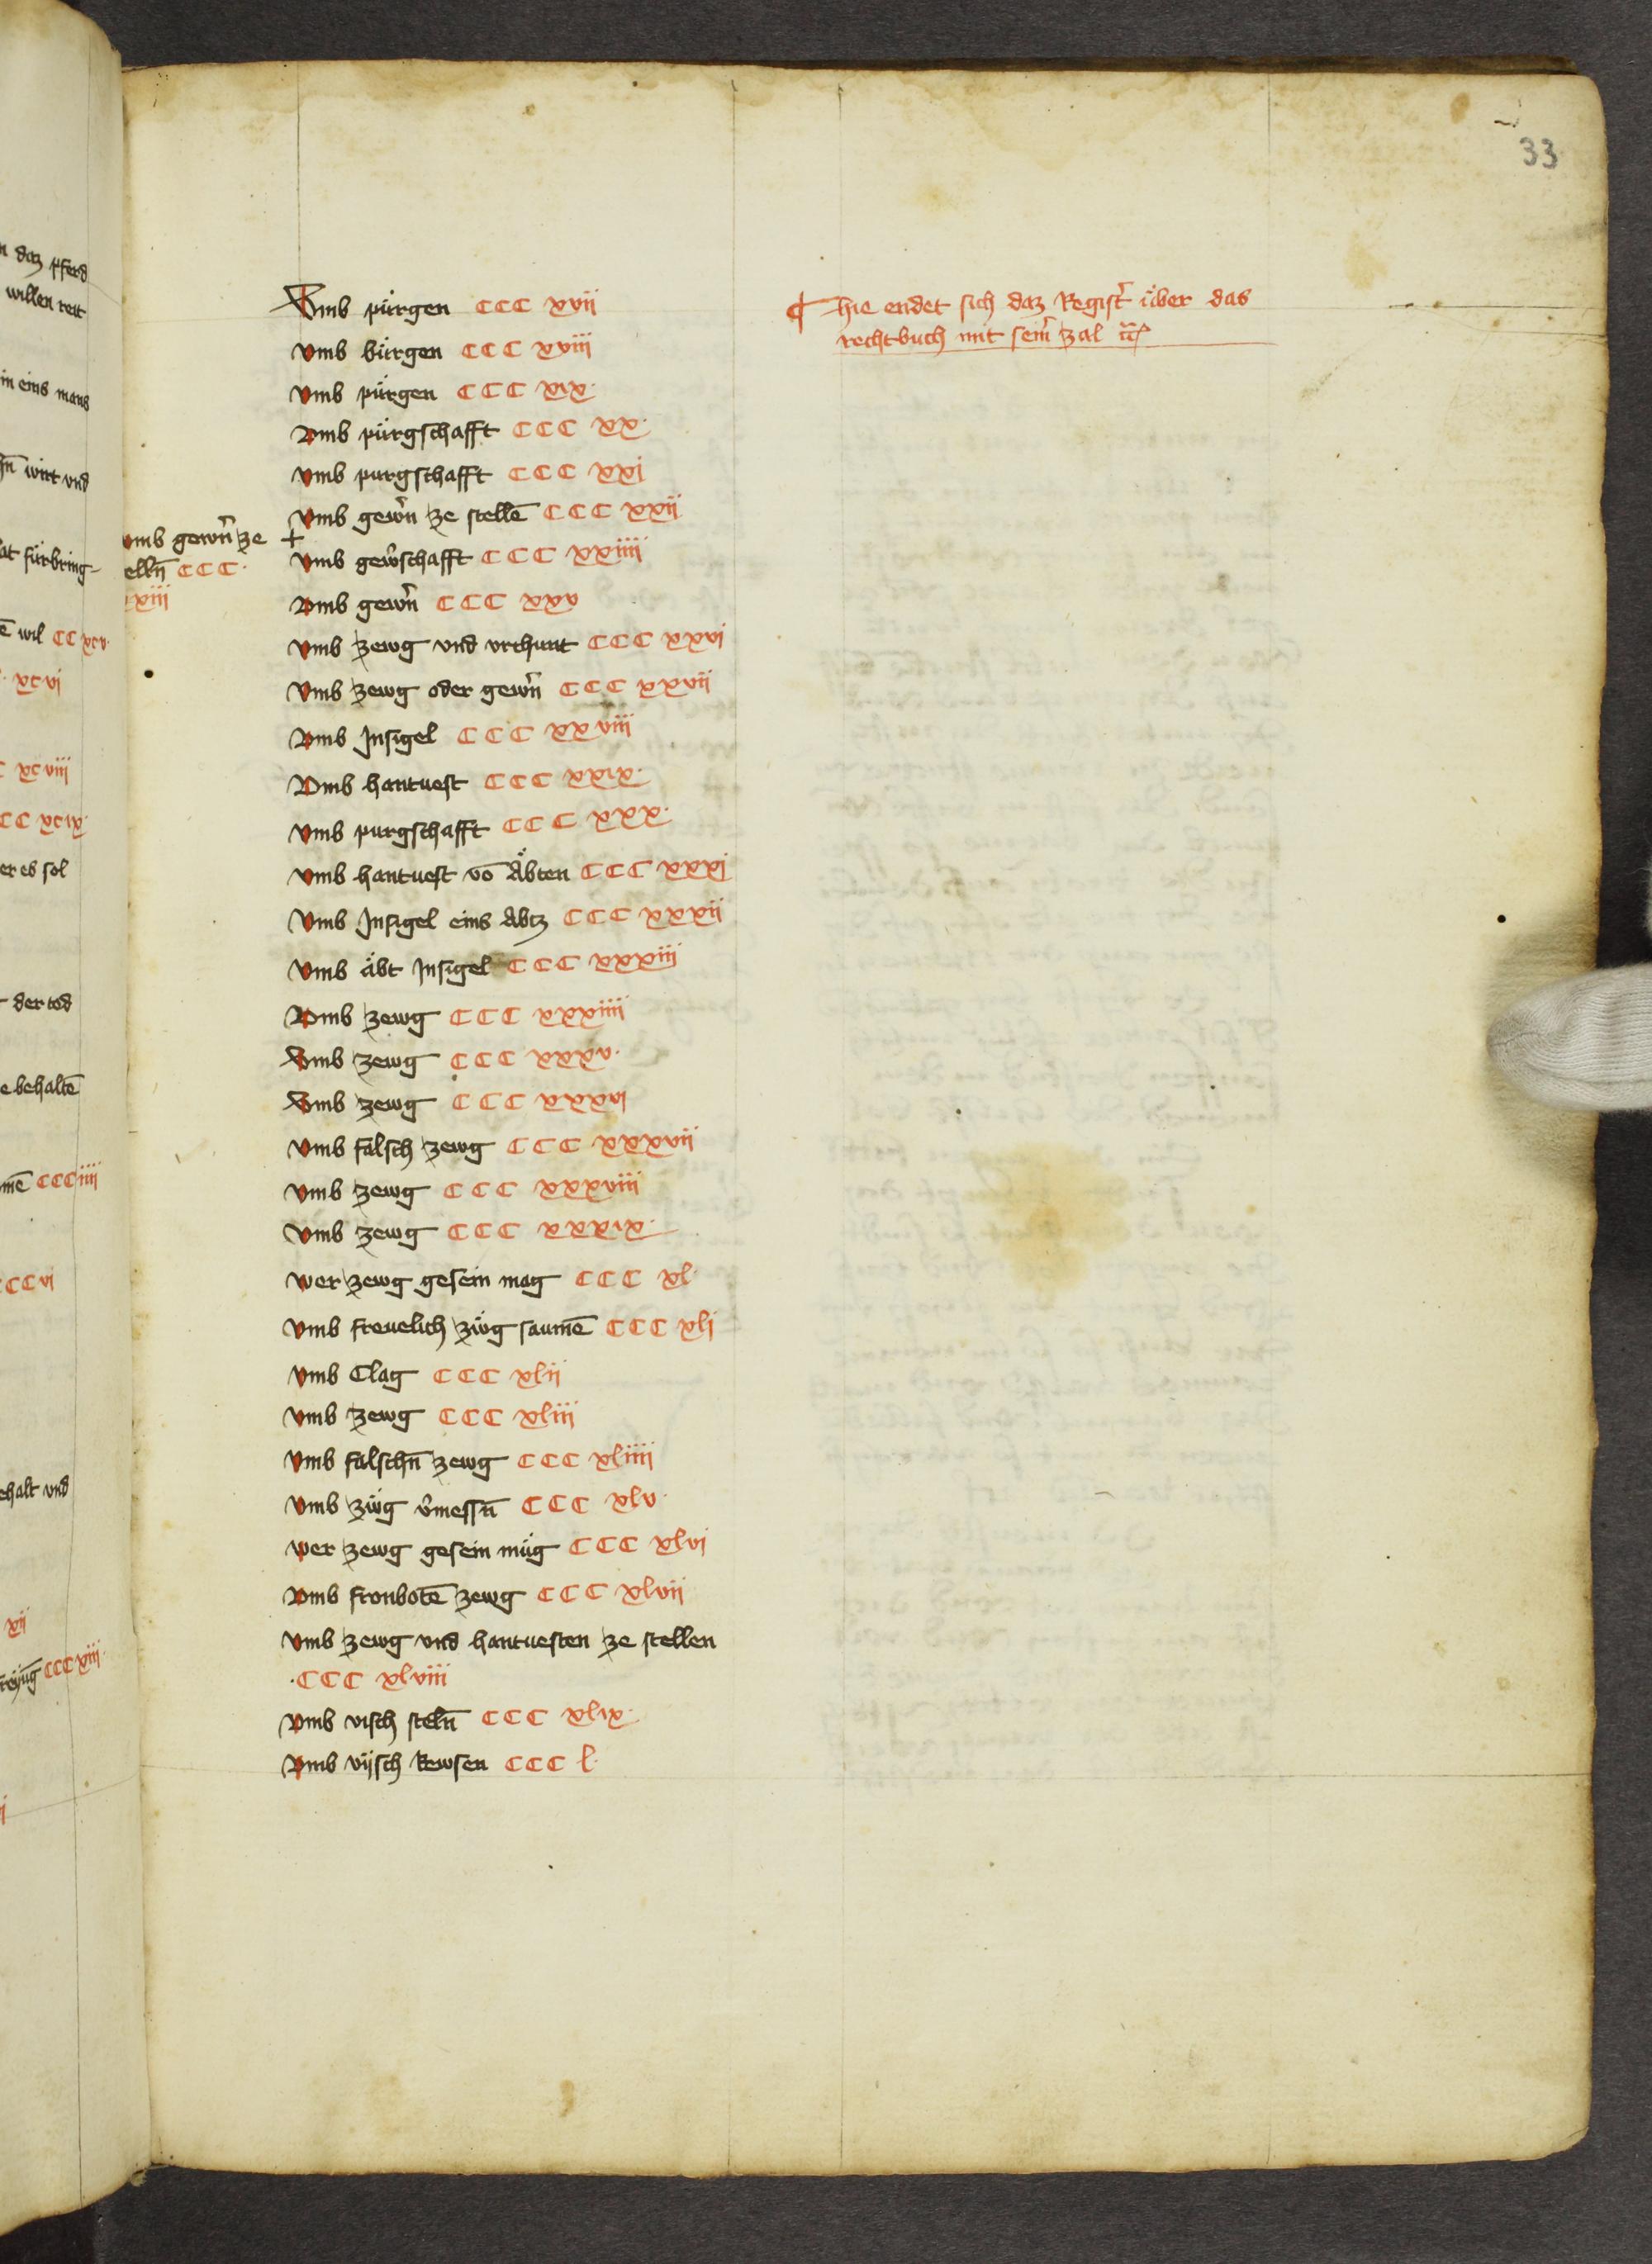 33
Vmb pürgen CCC xvii
vmb bürgen CCC xviii
vmb pürgen CCC xix·
Vmb pürgschafft CCC xx·
vmb purgschafft CCC xxi
vmb gewern̄ ze stellē CCC xxii
+
vmb gewern̄ ze
elln̄ CCC·
xiii
vmb gewerschafft CCC xxiiii
Vmb gewern̄ CCC xxv
vmb zewg vnd vrchunt CCC xxvi
vmb zewg oder gewern̄ CCC xxvii
Vmb Insigel CCC xxviii
Vmb hantuest CCC xxix·
vmb purgschafft CCC xxx·
vmb hantuest vō Äbten CCC xxxi
Vmb Insigel eins Abtz CCC xxxii
vmb äbt Insigel CCC xxxiii
Vmb zewg CCC xxxiiii
Vmb zewg CCC xxxv·
Vmb zewg CCC xxxvi
vmb falsch zewg CCC xxxvii
vmb zewg CCC xxxviii
vmb zewg CCC xxxix·
wer zewg gesein mag CCC xl·
vmb freuelich züg saumē CCC xli
vmb Clag CCC xlii
vmb zewg CCC xliii
vmb falschn̄ zewg CCC xliiii
vmb züg v̓messn̄ CCC xlv·
wer zewg gesein müg CCC xlvi
Vmb fronbotē zewg CCC xlvii
vmb zewg vnd hantuesten ze stellen
·CCC xlviii
Vmb visch steln̄ CCC xlix·
Vmb vijsch Rewsen CCC l·
¶ hie endet sich daz Regist̓ über das
rechtbuch mit sein̓ zal
n daz pferd
willen reit
in eins mans
wirt vnd
at fürbring-
ē wil CC xcv·
xcvi
xcviii
CC xcix·
er es sol
der tod
e behaltē
mē CCCiiii
CCC vi
ehalt vnd
xii
CCCxiii·